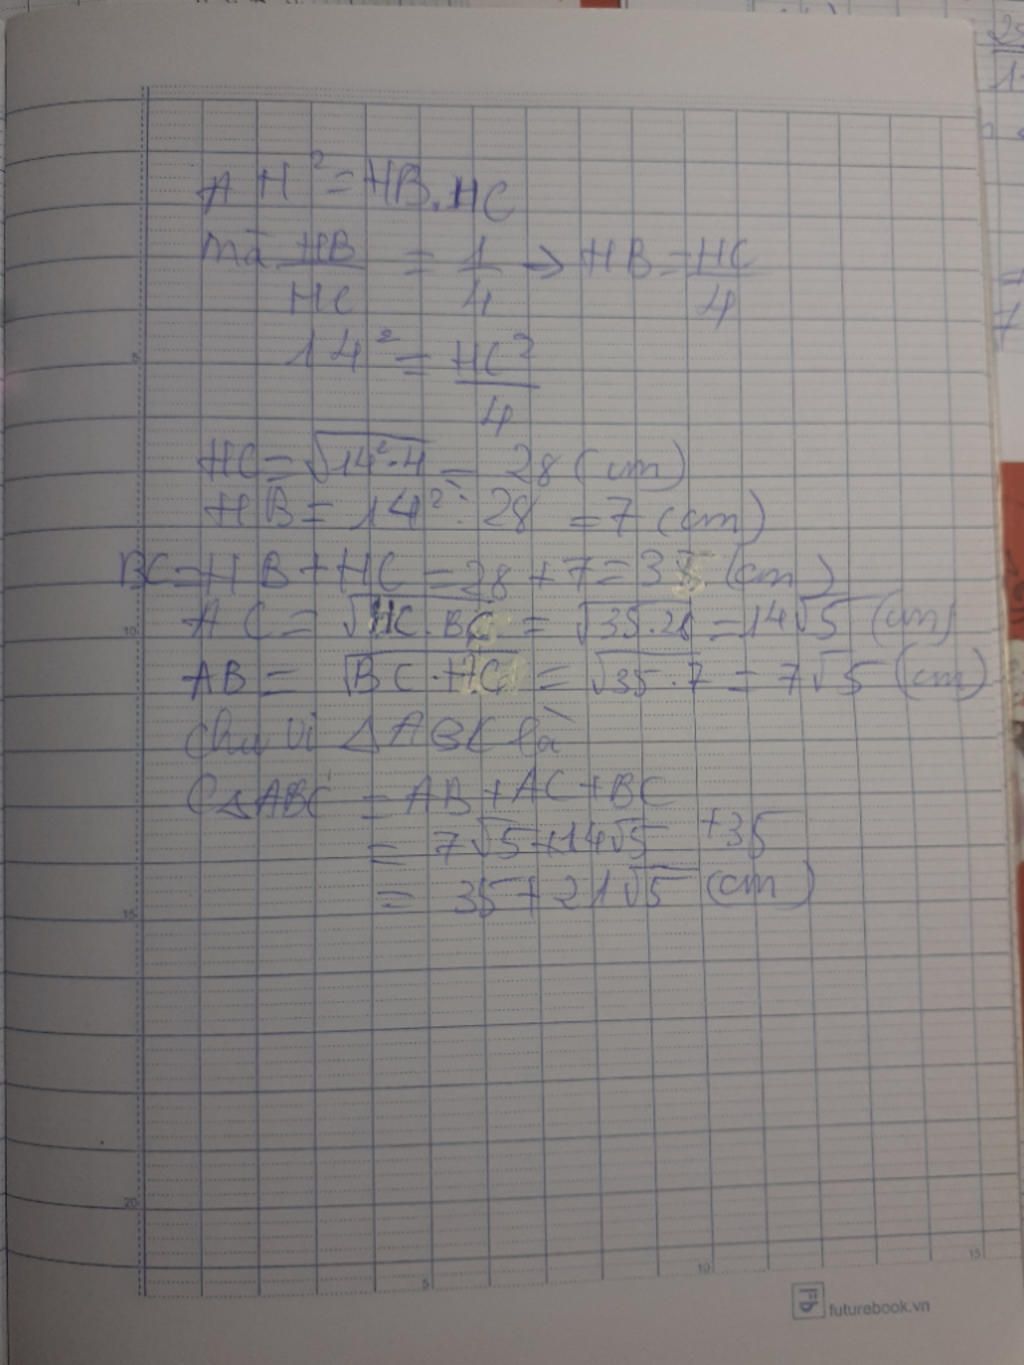 AH² = HB.HC
mà HB/HC = 1/4 → HB = HC/4
14² = HC²/4
HC = √(14².4) = 28 (cm)
HB = 14² : 28 = 7 (cm)
BC = HB + HC = 28 + 7 = 35 (cm)
AC = √(HC.BC) = √(35.28) = 14√5 (cm)
AB = √(BC.HC) = √(35.7) = 7√5 (cm)
Chu vi △ABC là
C△ABC = AB + AC + BC
= 7√5 + 14√5 + 35
= 35 + 21√5 (cm)
5
10
15
20
5
10
15
futurebook.vn